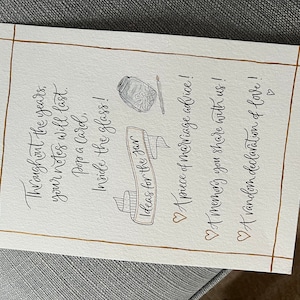 Throughout the years,
your notes will last
Pop a card,
Inside the glass!
Ideas for the jar
A piece of marriage advice!
A memory you share with us!
A random declaration of love!